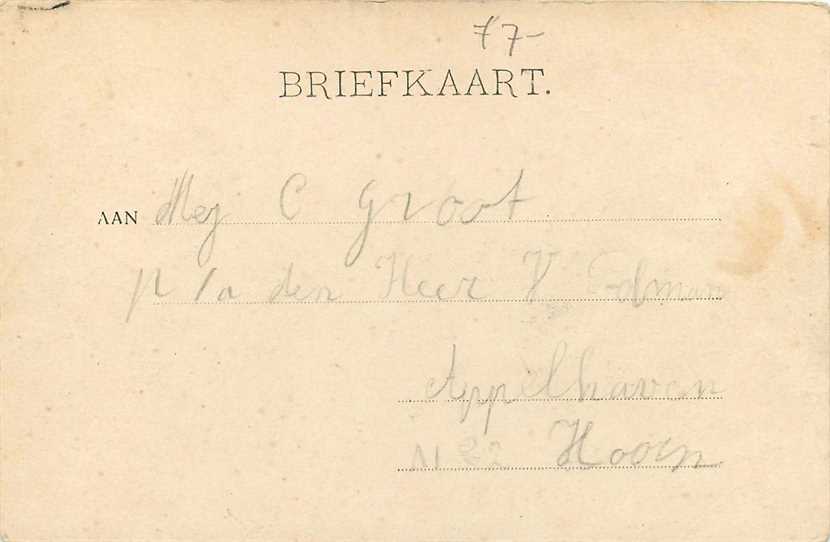 77-
BRIEFKAART.
AAN Mej C Groot
p/a den Heer V
Appelhaven
N 22 Hoorn